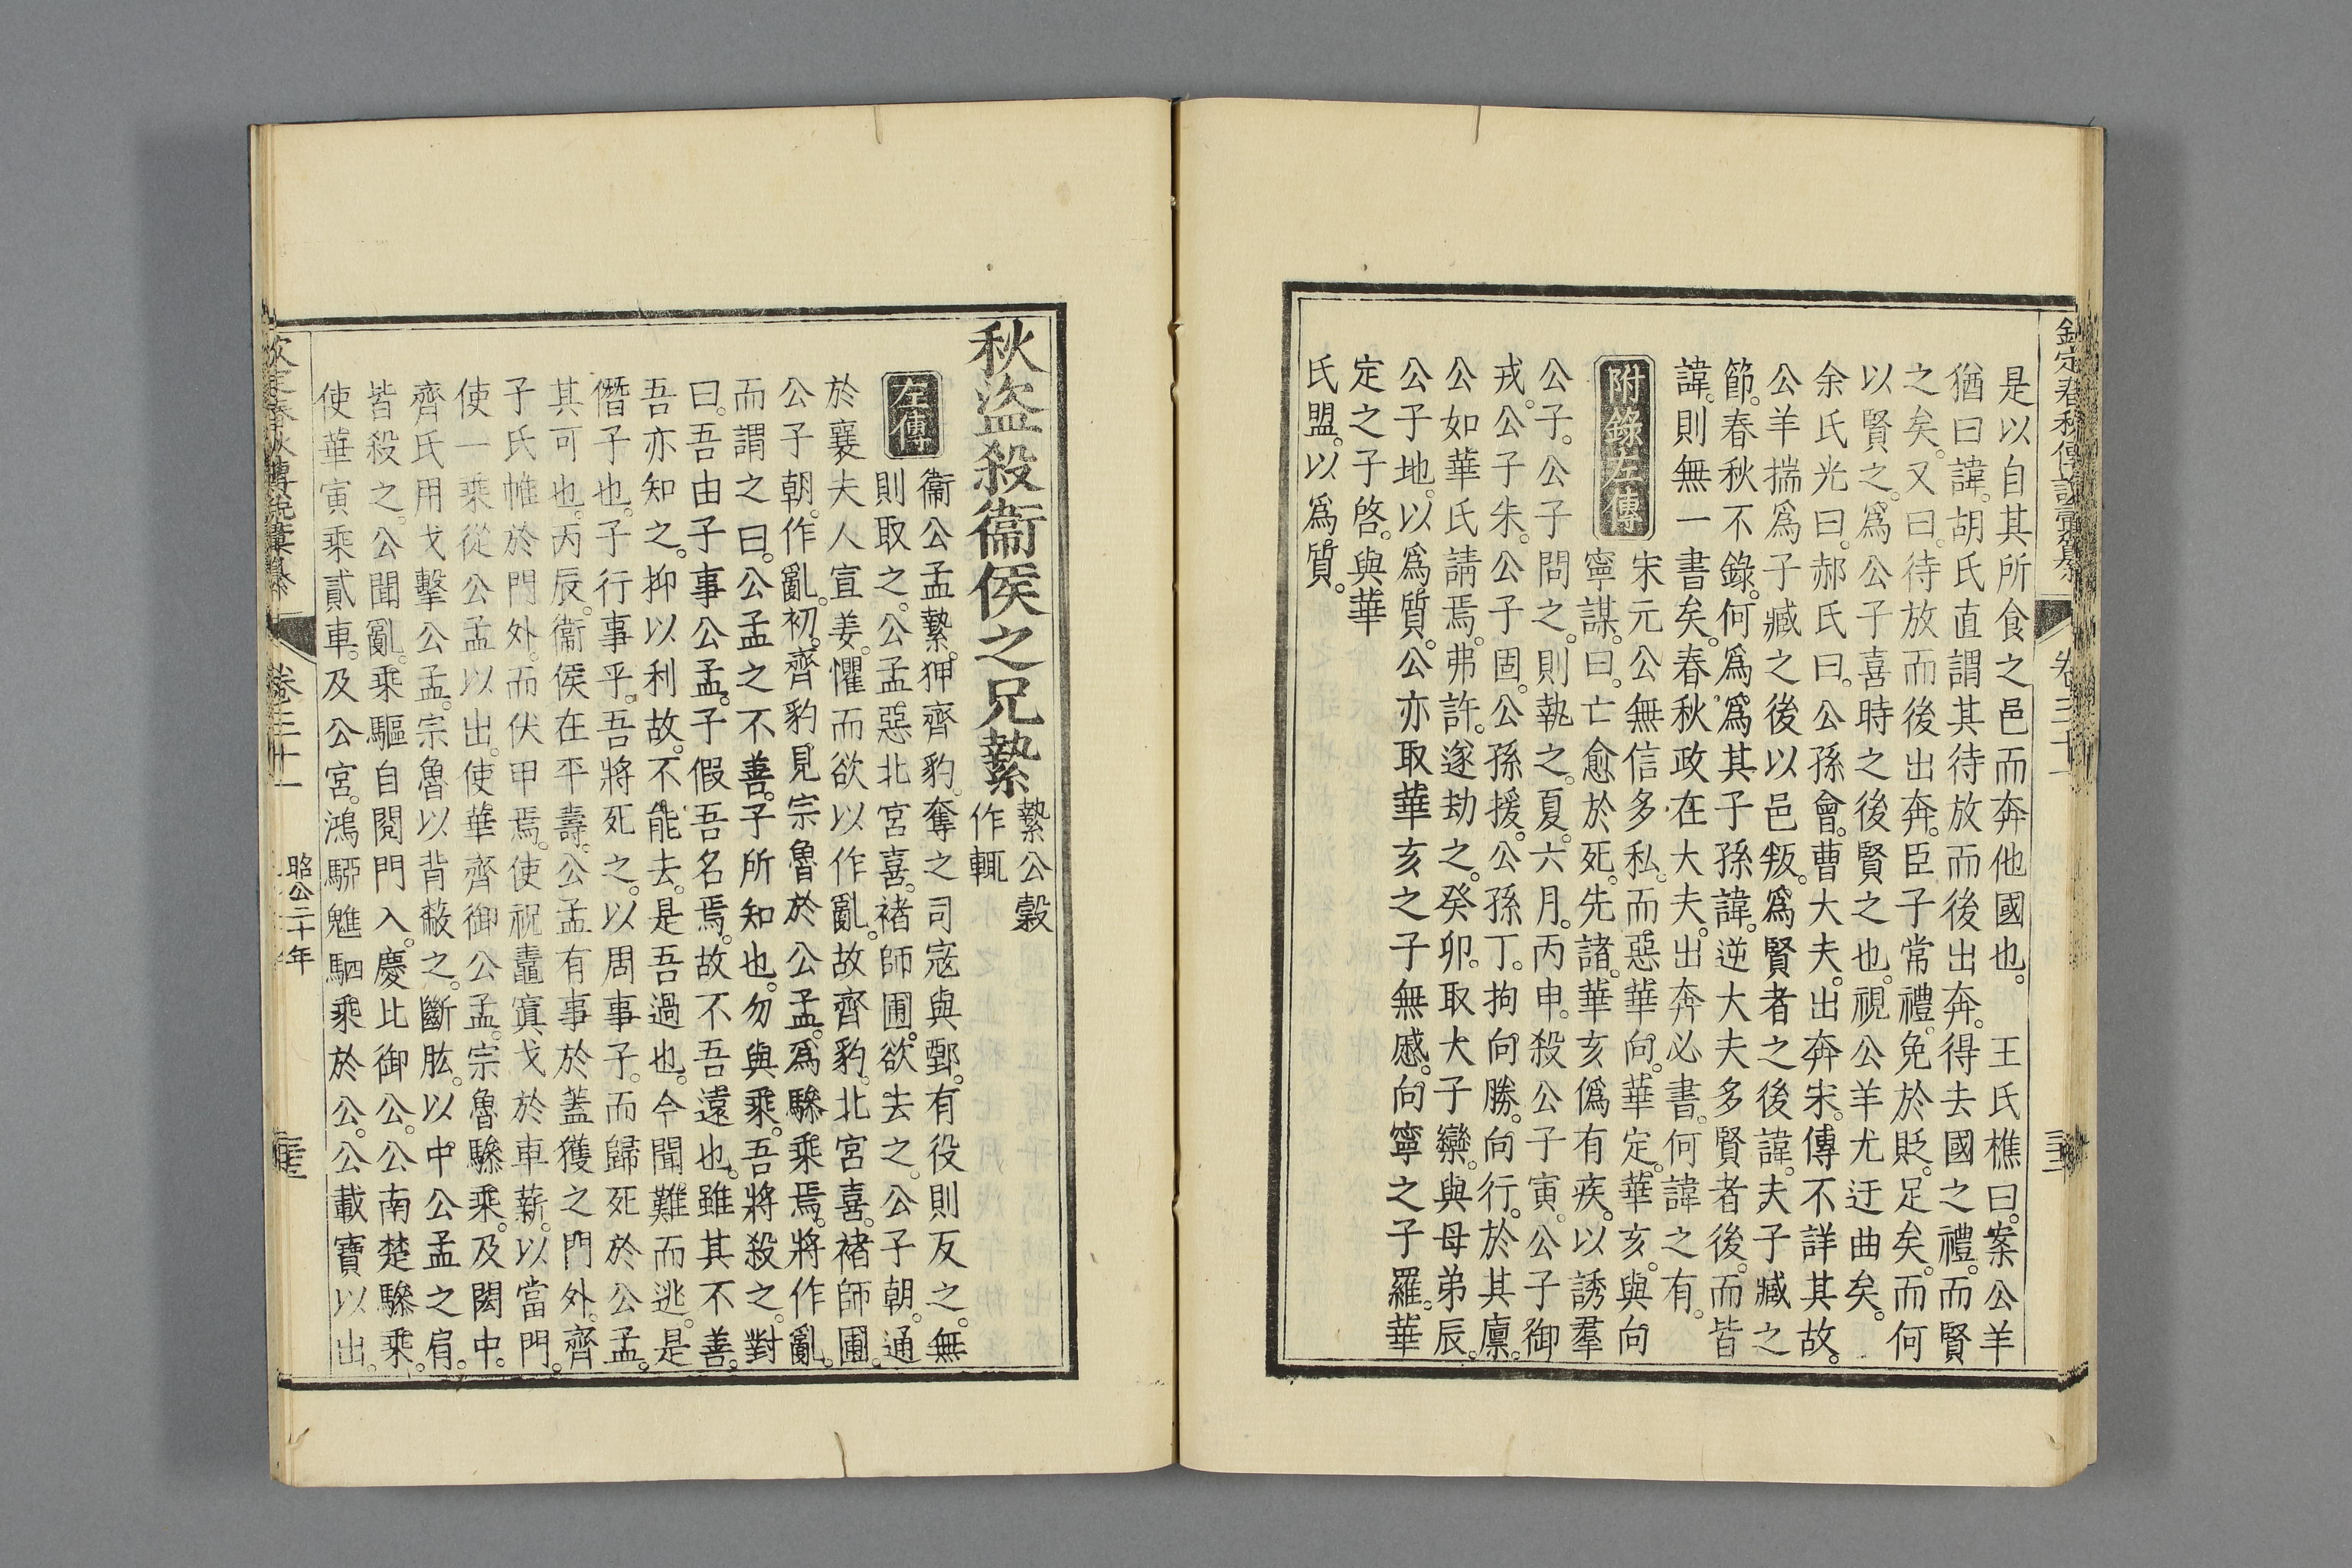 欽定春秋傳說彙纂 卷三十一
是以自其所食之邑而奔他國也。　王氏樵曰。案公羊
猶曰諱。胡氏直謂其待放而後出奔。得去國之禮。而賢
之矣。又曰。待放而後出奔。臣子常禮。免於貶。足矣。而何
以賢之。爲公子喜時之後賢之也。視公羊尤迂曲矣。
余氏光曰。郝氏曰。公孫會。曹大夫。出奔宋。傳不詳其故。
公羊揣爲子臧之後以邑叛。爲賢者之後諱。夫子臧之
節。春秋不錄。何爲爲其子孫諱。逆大夫多賢者後。而皆
諱。則無一書矣。春秋政在大夫。出奔必書。何諱之有。
附錄左傳
宋元公無信多私。而惡華向。華定。華亥。與向
寧謀。曰。亡愈於死。先諸。華亥僞有疾。以誘羣
公子。公子問之。則執之。夏。六月。丙申。殺公子寅。公子御
戎。公子朱。公子固。公孫援。公孫丁。拘向勝。向行。於其廩。
公如華氏請焉。弗許。遂劫之。癸卯。取大子欒。與母弟辰。
公子地。以爲質。公亦取華亥之子無慼。向寧之子羅。華
定之子啓。與華
氏盟。以爲質。
秋盜殺衞侯之兄縶
縶公穀
作輒
左傳
衞公孟縶。狎齊豹。奪之司寇與鄄。有役則反之。無
則取之。公孟惡北宮喜。褚師圃。欲去之。公子朝。通
於襄夫人宣姜。懼而欲以作亂。故齊豹。北宮喜。褚師圃。
公子朝。作亂。初。齊豹見宗魯於公孟。爲驂乘焉。將作亂。
而謂之曰。公孟之不善。子所知也。勿與乘。吾將殺之。對
曰。吾由子事公孟。子假吾名焉。故不吾遠也。雖其不善。
吾亦知之。抑以利故。不能去。是吾過也。今聞難而逃。是
僭子也。子行事乎。吾將死之。以周事子。而歸死於公孟。
其可也。丙辰。衞侯在平壽。公孟有事於蓋獲之門外。齊
子氏帷於門外。而伏甲焉。使祝鼃寘戈於車薪。以當門。
使一乘從公孟以出。使華齊御公孟。宗魯驂乘。及閎中。
齊氏用戈擊公孟。宗魯以背蔽之。斷肱。以中公孟之肩。
皆殺之。公聞亂。乘驅自閱門入。慶比御公。公南楚驂乘。
使華寅乘貳車。及公宮。鴻駵魋駟乘於公。公載寶以出。
欽定春秋傳說彙纂 卷三十一
昭公二十年